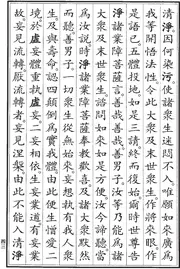 清淨因何染污使諸衆生迷悶不入唯願如來廣為
我等開悟法性令此大衆及末世衆生作將來眼作
是語已五體投地如是三請終而復始爾時世尊告
淨諸業障菩薩言善哉善哉善男子汝等乃能為諸
大衆及末世衆生諮問如來如是方便汝今諦聽當
為汝說時淨諸業障菩薩奉教歡喜及諸大衆默然
而聽善男子一切衆生從無始來妄想執有我人衆
生及與壽命認四顛倒為實我體由此便生憎愛二
境於虛妄體重執虛妄二妄相依生妄業道有妄業
故妄見流轉厭流轉者妄見涅槃由此不能入清淨